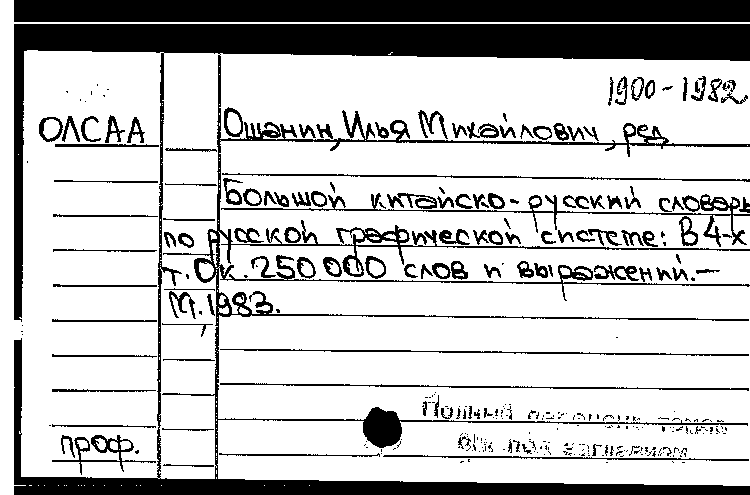 1900-1982
ОЛСАА
Ошанин, Илья Михайлович, ред.
Большой китайско-русский словарь
по русской графической системе: В 4-х
т. Ок. 250 000 слов и выражений.—
М., 1983.
Полный перечень томов
см. под заглавием
проф.